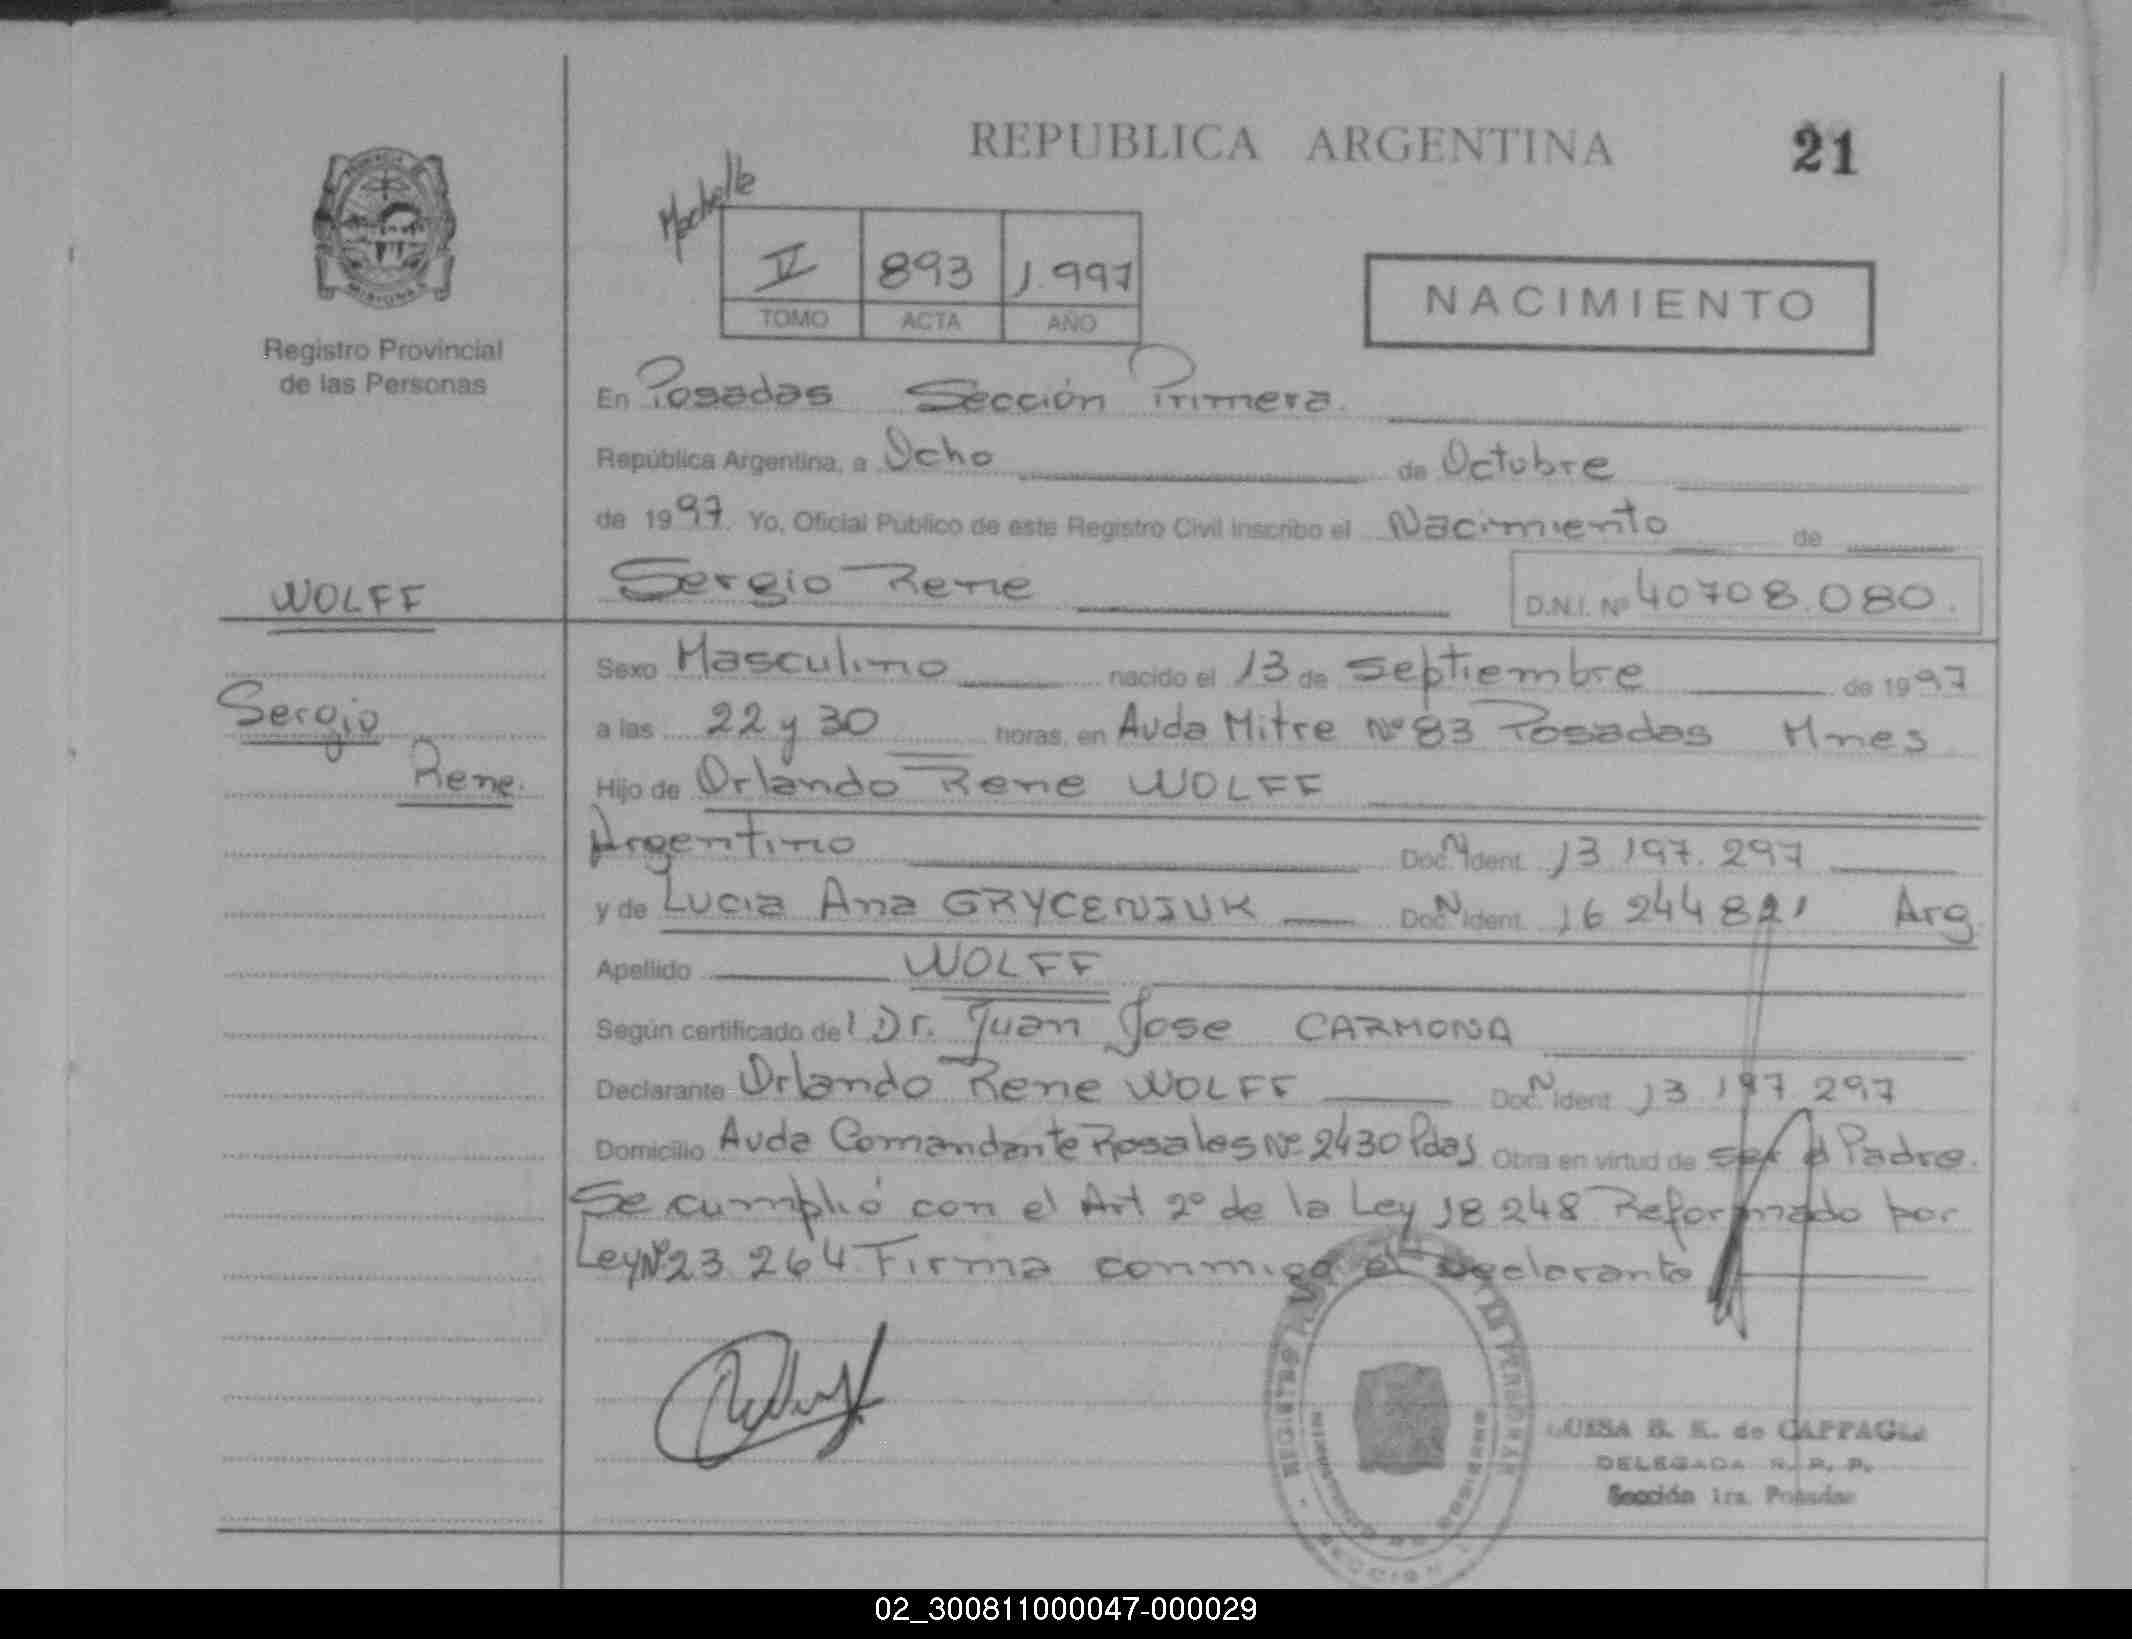 REPUBLICA ARGENTINA 21
V 893 1.997
TOMO ACTA AÑO
NACIMIENTO
MISIONES
Registro Provincial
de las Personas
En Posadas Sección Primera.
República Argentina, a Ocho de Octubre
de 1997. Yo, Oficial Publico de este Registro Civil inscribo el Nacimiento de
WOLFF Sergio Rene D.N.I. Nº 40708.080.
Sexo Masculino nacido el 13 de Septiembre de 1997
Sergio a las 22 y 30 horas, en Avda Mitre Nº 83 Posadas Mnes
Rene. Hijo de Orlando Rene WOLFF
Argentino Doc. N Ident. 13.197.297
y de Lucia Ana GRYCENIUK Doc. N Ident. 16 244 821 Arg.
Apellido WOLFF
Según certificado del Dr. Juan Jose CARMONA
Declarante Orlando Rene WOLFF Doc. N Ident. 13 197 297
Domicilio Avda Comandante Rosales Nº 2430 Pdas Obra en virtud de ser el Padre.
Se cumplió con el Art 2º de la Ley 18 248 Reformado por
Ley Nº 23 264 Firma conmigo el declarante
LUISA B. K. de CAPPAGLI
DELEGADA R. P. P.
Sección 1ra. Posadas
02_300811000047-000029